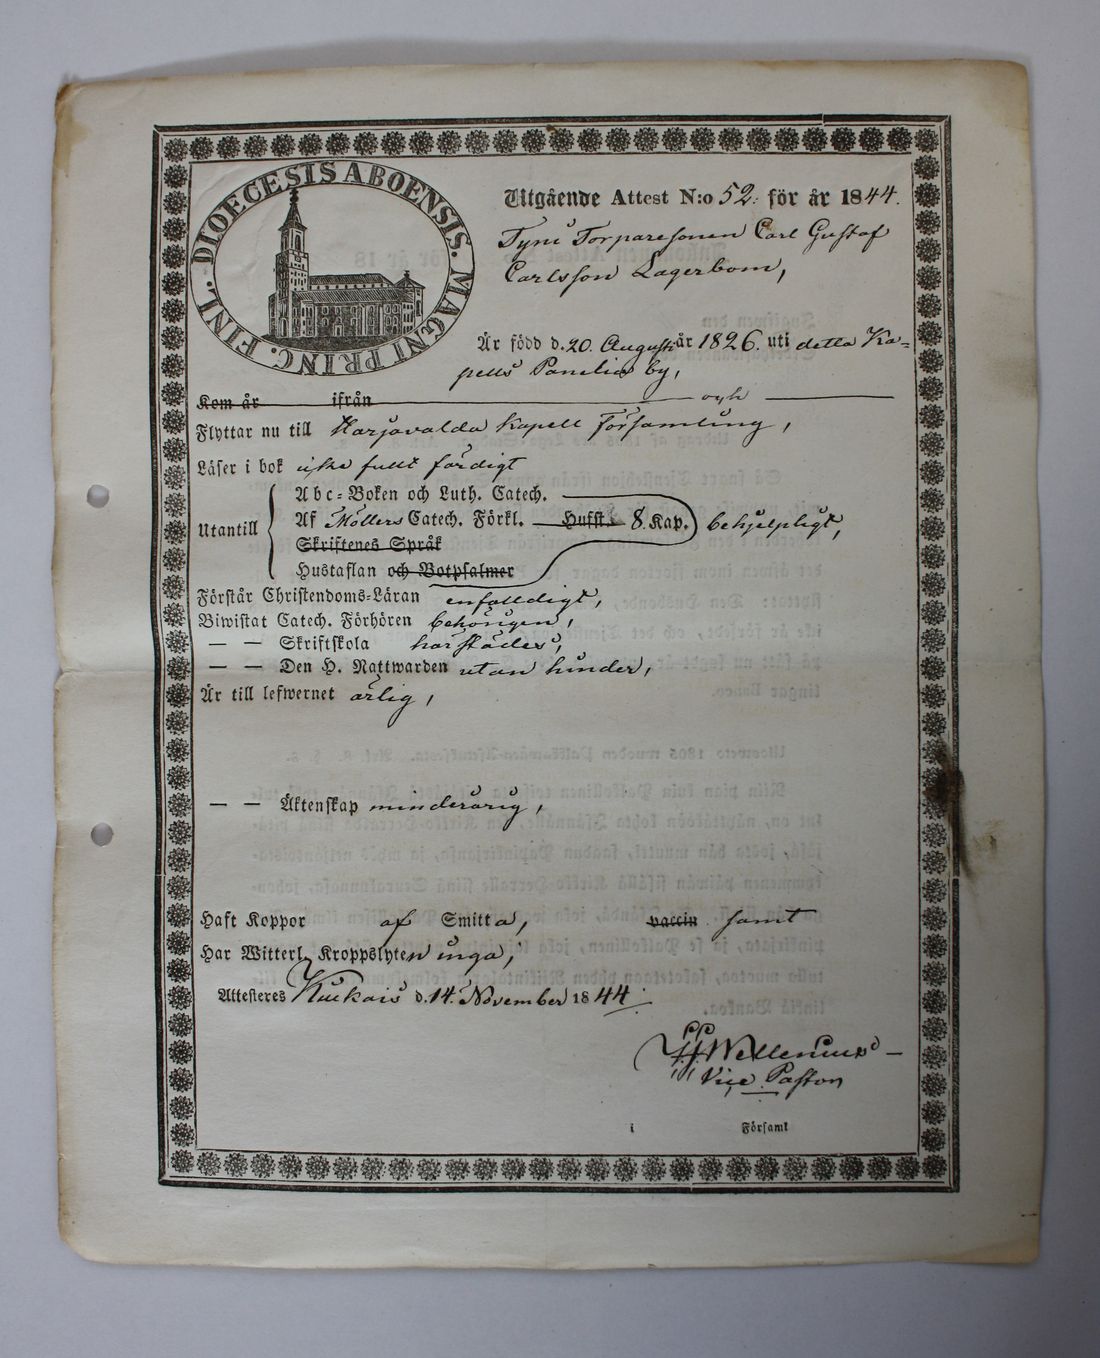 DIOECESIS ABOENSIS. MAGNI PRINC. FINL.
Utgående Attest N:o 52. för år 1844.
Torparesonen Carl Gustaf
Carlsson Lagerbom,
Är född d. 20 Augusti år 1826. uti detta Ka=
pells Panelia by,
Kom år ifrån och
Flyttar nu till Harjavalda Kapell Församling,
Läser i bok icke fullt färdigt
Utantill
Abc=Boken och Luth. Catech.
Af Möllers Catech. Förkl. Hufst. 8. Kap. behjelpligt,
Skriftenes Språk
Hustaflan och Botpsalmer
Förstår Christendoms=Läran enfalldigt,
Biwistat Catech. Förhören behörigen,
— — Skriftskola härstädes,
— — Den H. Nattwarden utan hinder,
Är till lefwernet ärlig,
— — Äktenskap minderårig,
Haft Koppor af Smitta, vaccin samt
Har Witterl. Kroppslyten inga,
Attesteres Kiukais d. 14. November 1844.
Wellenius
Vice Pastor
i Församl